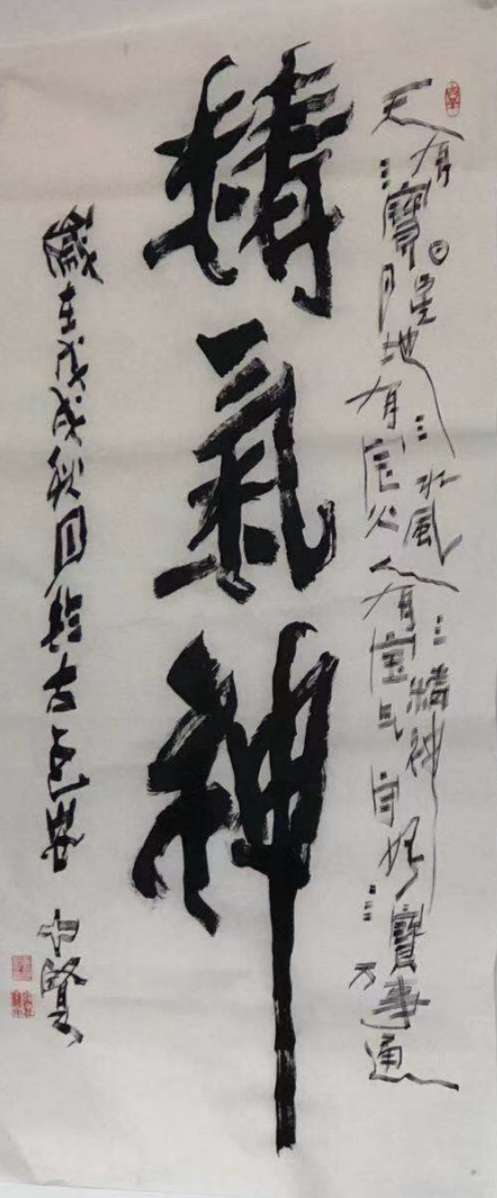 天有三寶日月星地有三宝水火風人有三宝精气神守好三寶万事通
精氣神
歲在戊戌秋月於古長安 賢